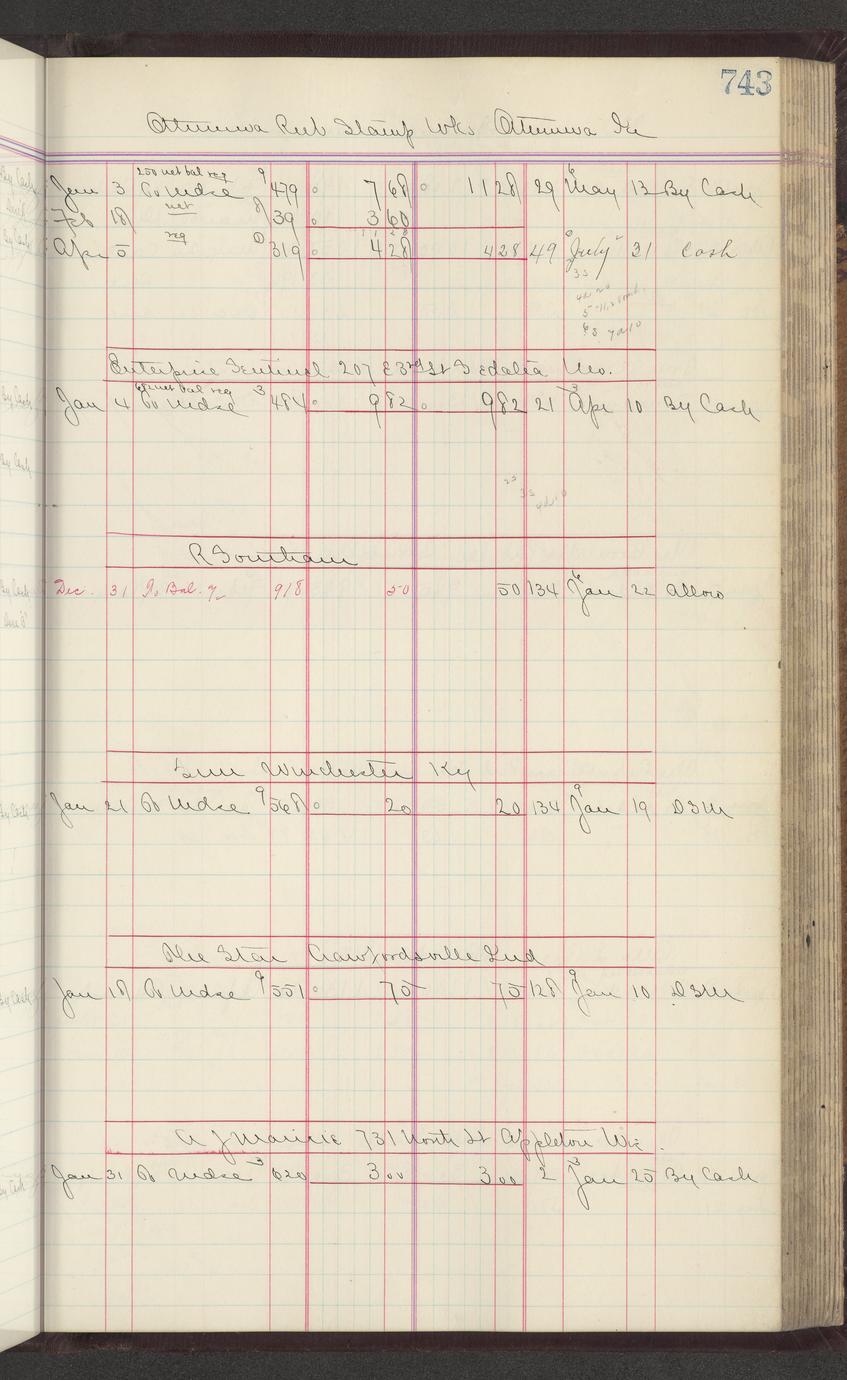 743
Ottumwa Rub Stamp Wks Ottumwa Ia
250 net bal reg
Jan 3 To Mdse 9 479 7 68 11 28 29 6 May 13 By Cash
Feb 18 net 8 39 3 60
11 28
Apr 5 reg 319 4 28 4 28 49 July 31 Cash
35
Enterprise Sentinel 207 E 3rd St Sedalia Mo.
net bal reg
Jan 4 To Mdse 3 484 9 82 9 82 21 3 Apr 10 By Cash
25
35
R
Dec. 31 To Bal. 918 50 50 134 6 Jan 22 Allow
Sun Winchester Ky
Jan 21 To Mdse 9 568 20 20 134 9 Jan 19 DSM
The Star Crawfordsville Ind
Jan 18 To Mdse 9 551 75 75 128 9 Jan 10 DSM
A J 731 North St Appleton Wis.
Jan 31 To Mdse 3 620 3 00 3 00 2 3 Jan 25 By Cash